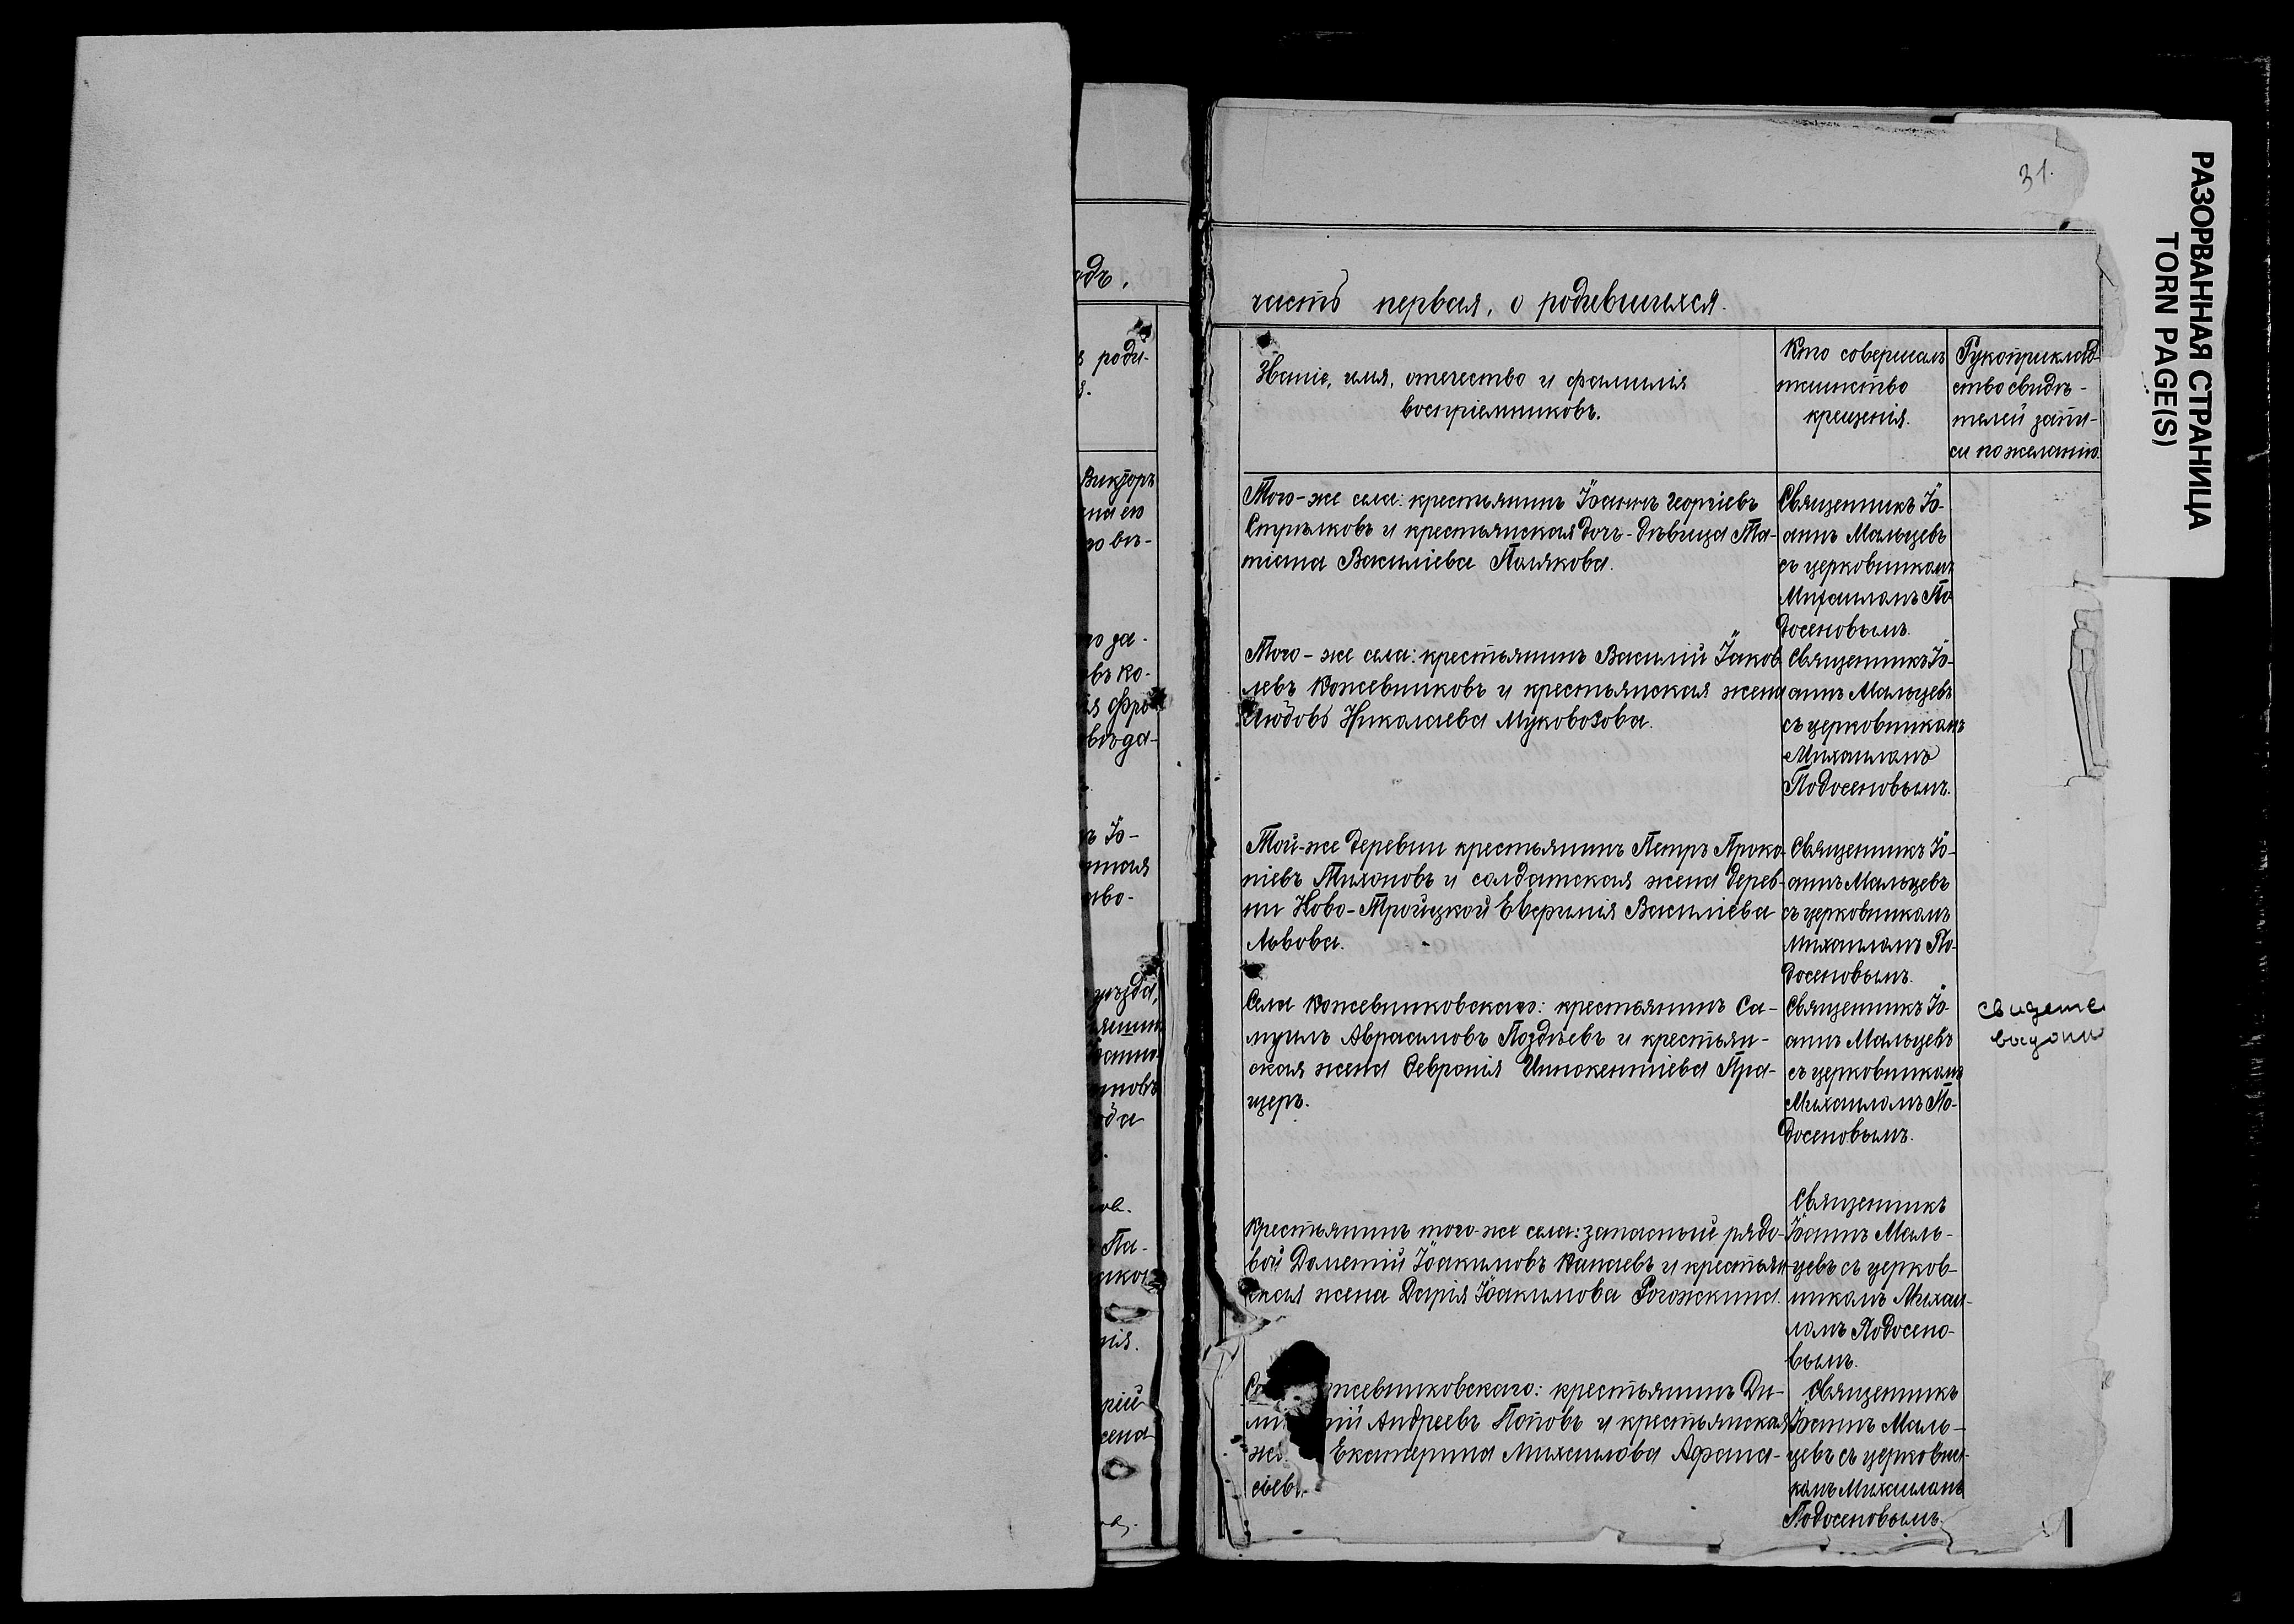 31.
РАЗОРВАННАЯ СТРАНИЦА
TORN PAGE(S)
одъ.
часть первая, о родившихся.
роди-
Званіе, имя, отечество и фамилія
воспріемниковъ.
Кто совершалъ
таинство
крещенія.
Рукоприклад-
ство свидѣ-
телей запи-
си по желанію.
Викторъ
Того-же села: крестьянинъ Іоаннъ Георгіевъ
Стрѣлковъ и крестьянская дочь-дѣвица Та-
тіана Василіева Полякова.
Священникъ Іо-
аннъ Мальцевъ
съ церковникомъ
Михаиломъ По-
досеновымъ.
Того-же села: крестьянинъ Василій Іаков-
левъ Кожевниковъ и крестьянская жена
Любовь Николаева Муковозова.
Священникъ Іо-
аннъ Мальцевъ
съ церковникомъ
Михаиломъ
Подосеновымъ.
Той-же деревни крестьянинъ Петръ Проко-
піевъ Тихоновъ и солдатская жена дерев-
ни Ново-Троицкой Евфимія Василіева
Львова.
Священникъ Іо-
аннъ Мальцевъ
съ церковникомъ
Михаиломъ По-
досеновымъ.
Села Кожевниковскаго: крестьянинъ Са-
муилъ Авраамовъ Поздѣевъ и крестьян-
ская жена Февронія Иннокентіева Пра-
щеръ.
Священникъ Іо-
аннъ Мальцевъ
съ церковникомъ
Михаиломъ По-
досеновымъ.
Крестьянинъ того-же села: запасный рядо-
вой Дометій Іоакимовъ Канаевъ и крестьян-
ская жена Дарія Іоакимова Рогожкина.
Священникъ
Іоаннъ Маль-
цевъ съ церков-
никомъ Михаи-
ломъ Подосено-
вымъ.
жевниковскаго: крестьянинъ Ди-
ми тій Андреевъ Поповъ и крестьянская
же Екатерина Михаилова Афана-
сіев
Священникъ
Іоаннъ Маль-
цевъ съ церковни-
комъ Михаиломъ
Подосеновымъ.